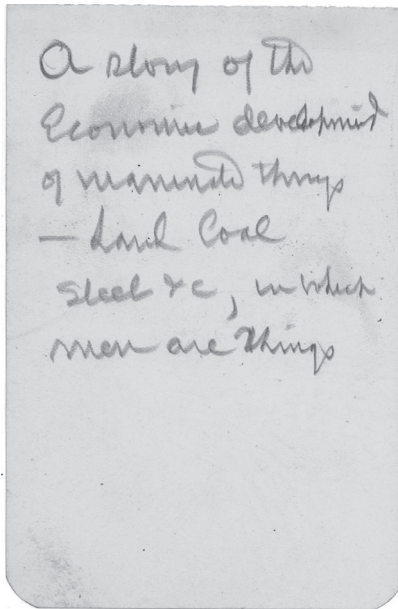 A story of the
Economic development
of inanimate things
— Land Coal
Steel & c, in which
men are things